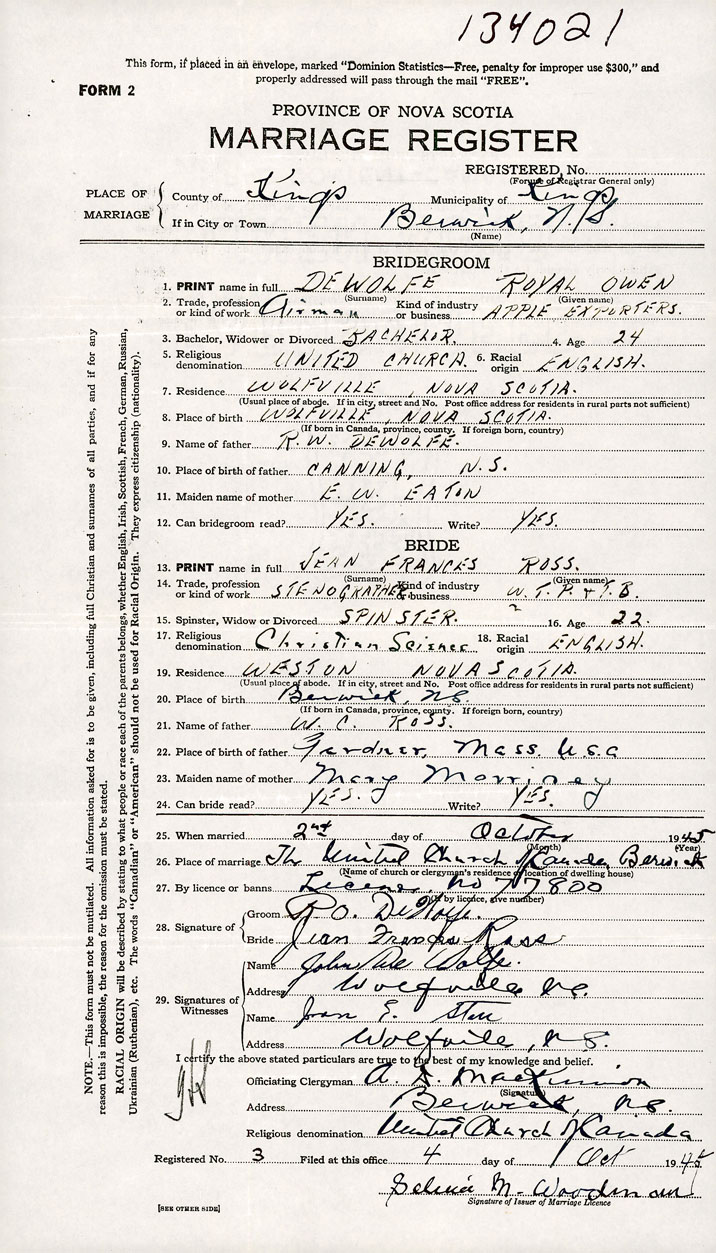 134021
This form, if placed in an envelope, marked "Dominion Statistics—Free, penalty for improper use $300," and
properly addressed will pass through the mail "FREE".
FORM 2
PROVINCE OF NOVA SCOTIA
MARRIAGE REGISTER
REGISTERED, No.
(For use of Registrar General only)
PLACE OF MARRIAGE
County of Kings Municipality of Kings
If in City or Town Berwick, N.S.
(Name)
BRIDEGROOM
1. PRINT name in full DEWOLFE ROYAL OWEN
(Surname) (Given name)
2. Trade, profession or kind of work Airman Kind of industry or business APPLE EXPORTERS.
3. Bachelor, Widower or Divorced BACHELOR. 4. Age 24
5. Religious denomination UNITED CHURCH. 6. Racial origin ENGLISH.
7. Residence WOLFVILLE, NOVA SCOTIA.
(Usual place of abode. If in city, street and No. Post office address for residents in rural parts not sufficient)
8. Place of birth WOLFVILLE, NOVA SCOTIA.
(If born in Canada, province, county. If foreign born, country)
9. Name of father R. W. DEWOLFE.
10. Place of birth of father CANNING, N.S.
11. Maiden name of mother E. W. EATON
12. Can bridegroom read? YES. Write? YES.
BRIDE
13. PRINT name in full JEAN FRANCES ROSS.
(Surname) (Given name)
14. Trade, profession or kind of work STENOGRAPHER Kind of industry or business W. T. P. & T. B.
15. Spinster, Widow or Divorced SPINSTER. 16. Age 22.
17. Religious denomination Christian Science 18. Racial origin ENGLISH.
19. Residence WESTON NOVA SCOTIA.
(Usual place of abode. If in city, street and No. Post office address for residents in rural parts not sufficient)
20. Place of birth Berwick, NS
(If born in Canada, province, county. If foreign born, country)
21. Name of father W. C. ROSS.
22. Place of birth of father Gardner, Mass. U.S.A
23. Maiden name of mother Mary Morriney
24. Can bride read? YES. Write? YES.
25. When married 2nd day of October 1945
(Month) (Year)
26. Place of marriage The United Church of Canada, Berwick
(Name of church or clergyman's residence or location of dwelling house)
27. By licence or banns License No 77800
(If by licence, give number)
28. Signature of
Groom R. O. DeWolfe.
Bride Jean Frances Ross
29. Signatures of Witnesses
Name John De Wolfe.
Address Wolfville N.S.
Name Joan E.
Address Wolfville, N.S.
I certify the above stated particulars are true to the best of my knowledge and belief.
Officiating Clergyman A. D. MacKinnon
(Signature)
Address Berwick, N.S.
Religious denomination United Church of Canada
Registered No. 3 Filed at this office 4 day of Oct 1945
Selina M. Woodman
Signature of Issuer of Marriage Licence
[SEE OTHER SIDE]
NOTE.—This form must not be mutilated. All information asked for is to be given, including full Christian and surnames of all parties, and if for any
reason this is impossible, the reason for the omission must be stated.
RACIAL ORIGIN will be described by stating to what people or race each of the parents belongs, whether English, Irish, Scottish, French, German, Russian,
Ukrainian (Ruthenian), etc. The words "Canadian" or "American" should not be used for Racial Origin. They express citizenship (nationality).